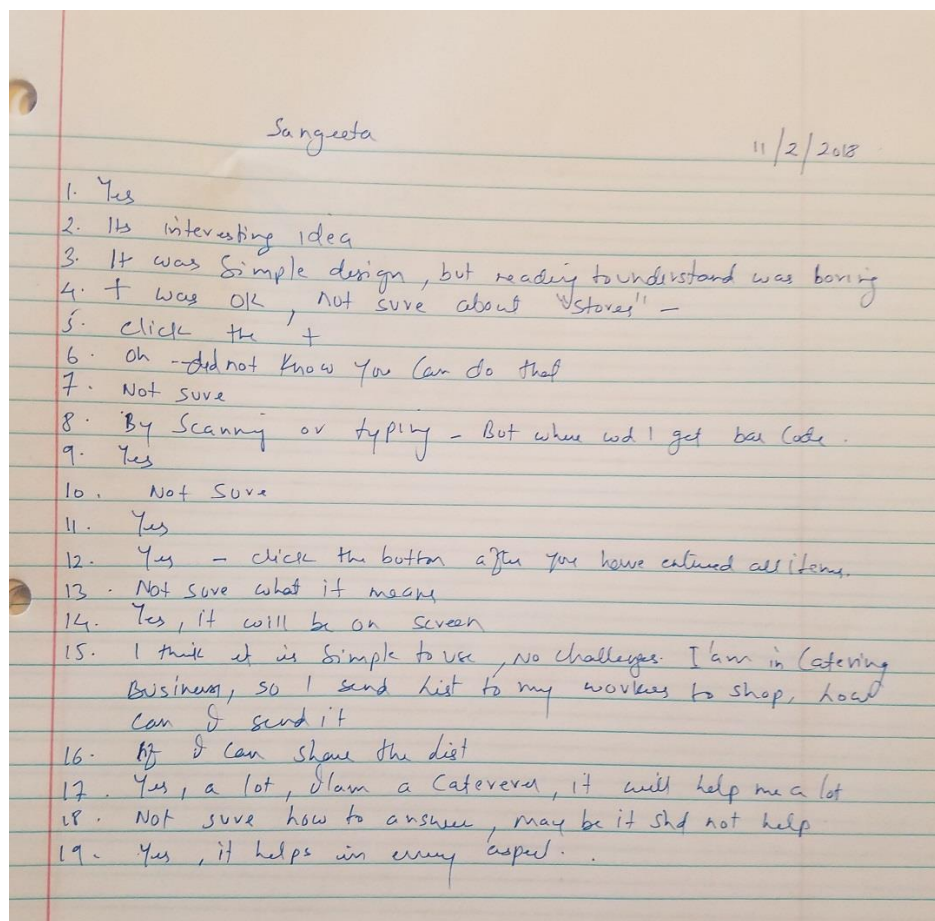 Sangeeta
11/2/2018
1. Yes
2. Its interesting idea
3. It was Simple design, but reading to understand was boring
4. t was OK, not sure about "stores" -
5. Click the '+
6. Oh -- did not know you can do that
7. Not sure
8. By Scanning or typing - But where wod I get bar Code.
9. Yes
10. Not Sure
11. Yes
12. Yes - click the button after you have entered all items.
13. Not sure what it means
14. Yes, it will be on screen
15. I think it is Simple to use, No challenges. I'am in Catering
Business, so I send list to my workers to shop, how
can I send it
16. If I can share the list
17. Yes, a lot, I am a Caterer, it will help me a lot
18. Not sure how to answer, may be it shd not help
19. Yes, it helps in every aspect.